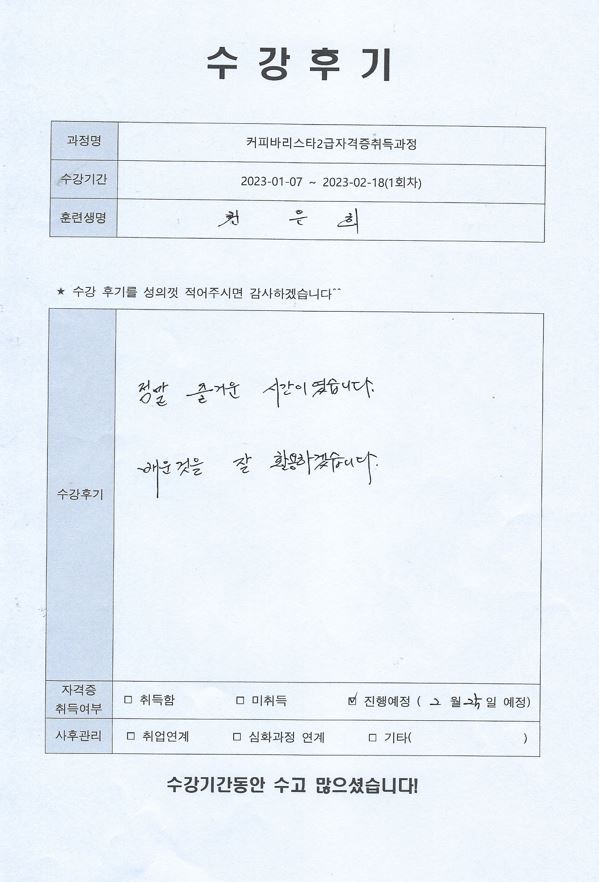 수강후기
과정명 커피바리스타2급자격증취득과정
수강기간 2023-01-07 ~ 2023-02-18(1회차)
훈련생명 천 은 희
★ 수강 후기를 성의껏 적어주시면 감사하겠습니다^^
정말 즐거운 시간이였습니다.
배운것을 잘 활용하겠습니다.
수강후기
자격증 취득여부 □ 취득함 □ 미취득 ☑ 진행예정 ( 2 월 일 예정)
사후관리 □ 취업연계 □ 심화과정 연계 □ 기타( )
수강기간동안 수고 많으셨습니다!